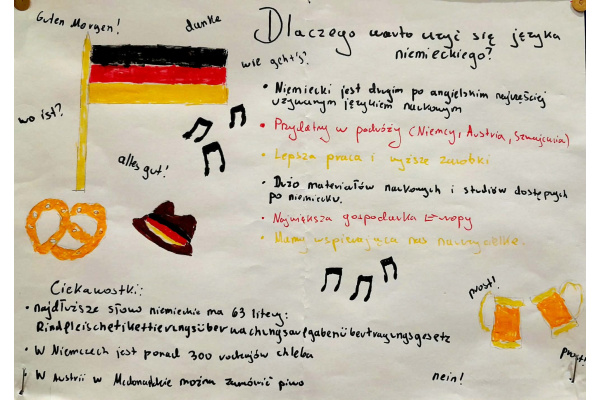 Guten Morgen!
danke
wie geht's?
wo ist?
alles gut!
Dlaczego warto uczyć się języka
niemieckiego?
• Niemiecki jest drugim po angielskim najczęściej
używanym językiem naukowym
• Przydatny w podróży (Niemcy, Austria, Szwajcaria)
• Lepsza praca i wyższe zarobki
• Dużo materiałów naukowych i studiów dostępnych
po niemiecku.
• Największa gospodarka Europy
• Mamy wspierającą nas nauczycielkę.
Ciekawostki:
• najdłuższe słowo niemieckie ma 63 litery:
Rindfleischetikettierungsüberwachungsaufgabenübertragungsgesetz
• W Niemczech jest ponad 300 rodzajów chleba
• W Austrii w Mcdonaldzie można zamówić piwo
prost!
prost!
nein!